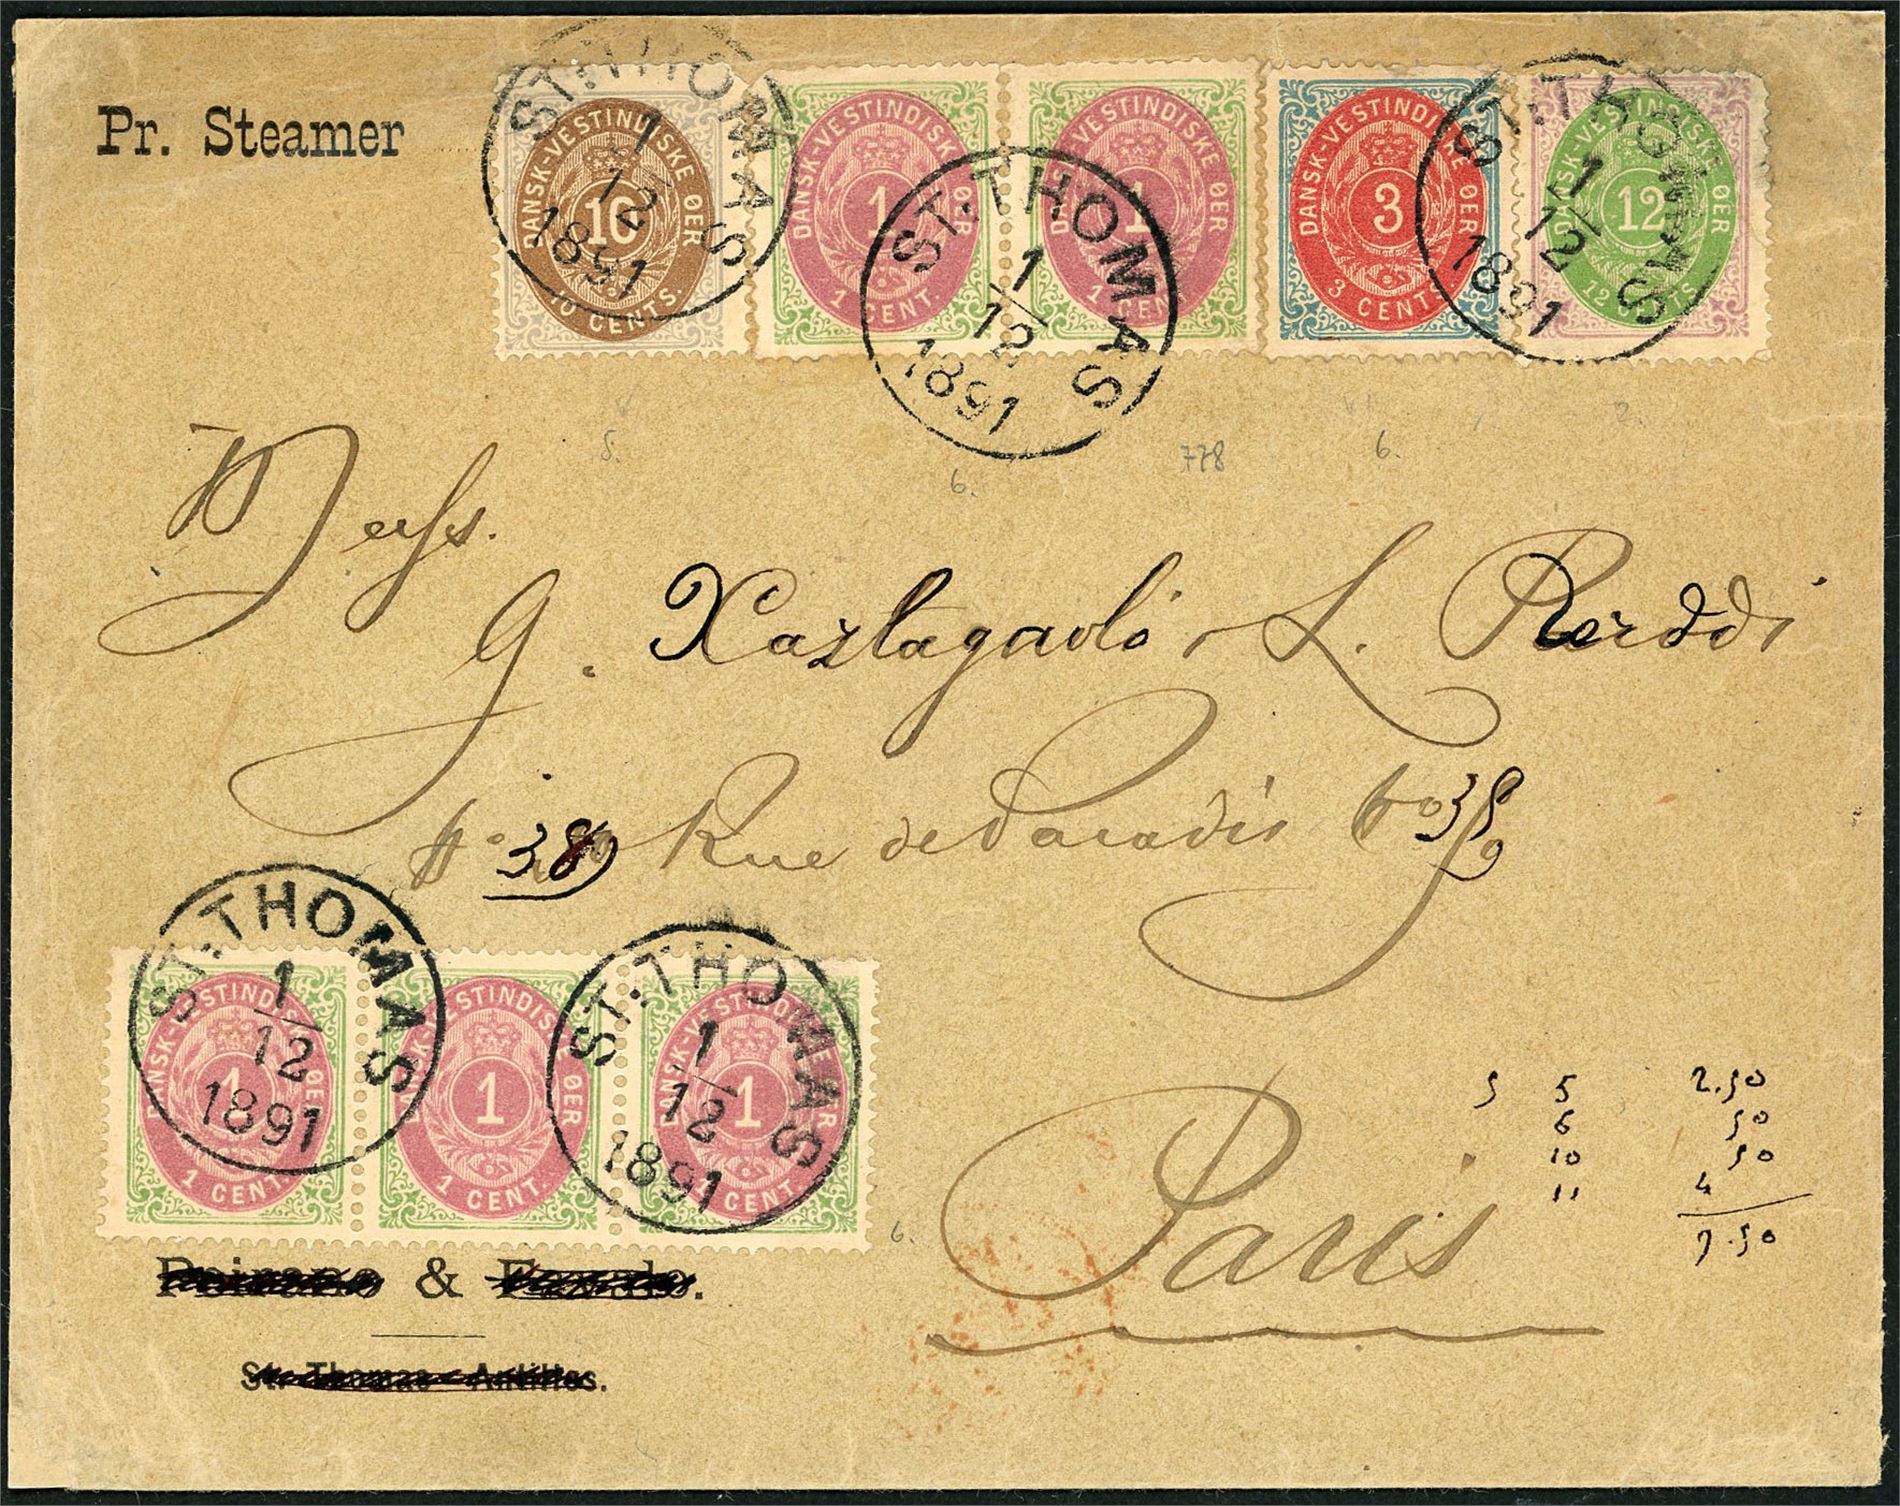 Pr. Steamer
ST. THOMAS
1/12
1891
DANSK-VESTINDISKE ØER
10
10 CENTS.
DANSK-VESTINDISKE ØER
1
1 CENT.
DANSK-VESTINDISKE ØER
1
1 CENT.
ST. THOMAS
1/12
1891
DANSK-VESTINDISKE ØER
3
3 CENTS
ST. THOMAS
1/12
1891
DANSK-VESTINDISKE ØER
12
12 CENTS
5.
6.
778
6.
2.
Messs.
G. L.
39 Rue de Paradis No 39
ST. THOMAS
1/12
1891
DANSK-VESTINDISKE ØER
1
1 CENT.
DANSK-VESTINDISKE ØER
1
1 CENT.
ST. THOMAS
1/12
1891
DANSK-VESTINDISKE ØER
1
1 CENT.
6.
Paris
5 5 2.50
6 50
10 50
11 4
7.50
&
St. Thomas - Antilles.